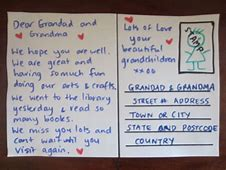 Dear Grandad and
Grandma
We hope you are well.
We are great and
having so much fun
doing our arts & crafts.
We went to the library
yesterday & read so
many books.
We miss you lots and
cant wait until you
visit again.
Lots of Love
your
beautiful
grandchildren
xxoo
STAMP
GRANDAD & GRANDMA
STREET # ADDRESS
TOWN OR CITY
STATE AND POSTCODE
COUNTRY